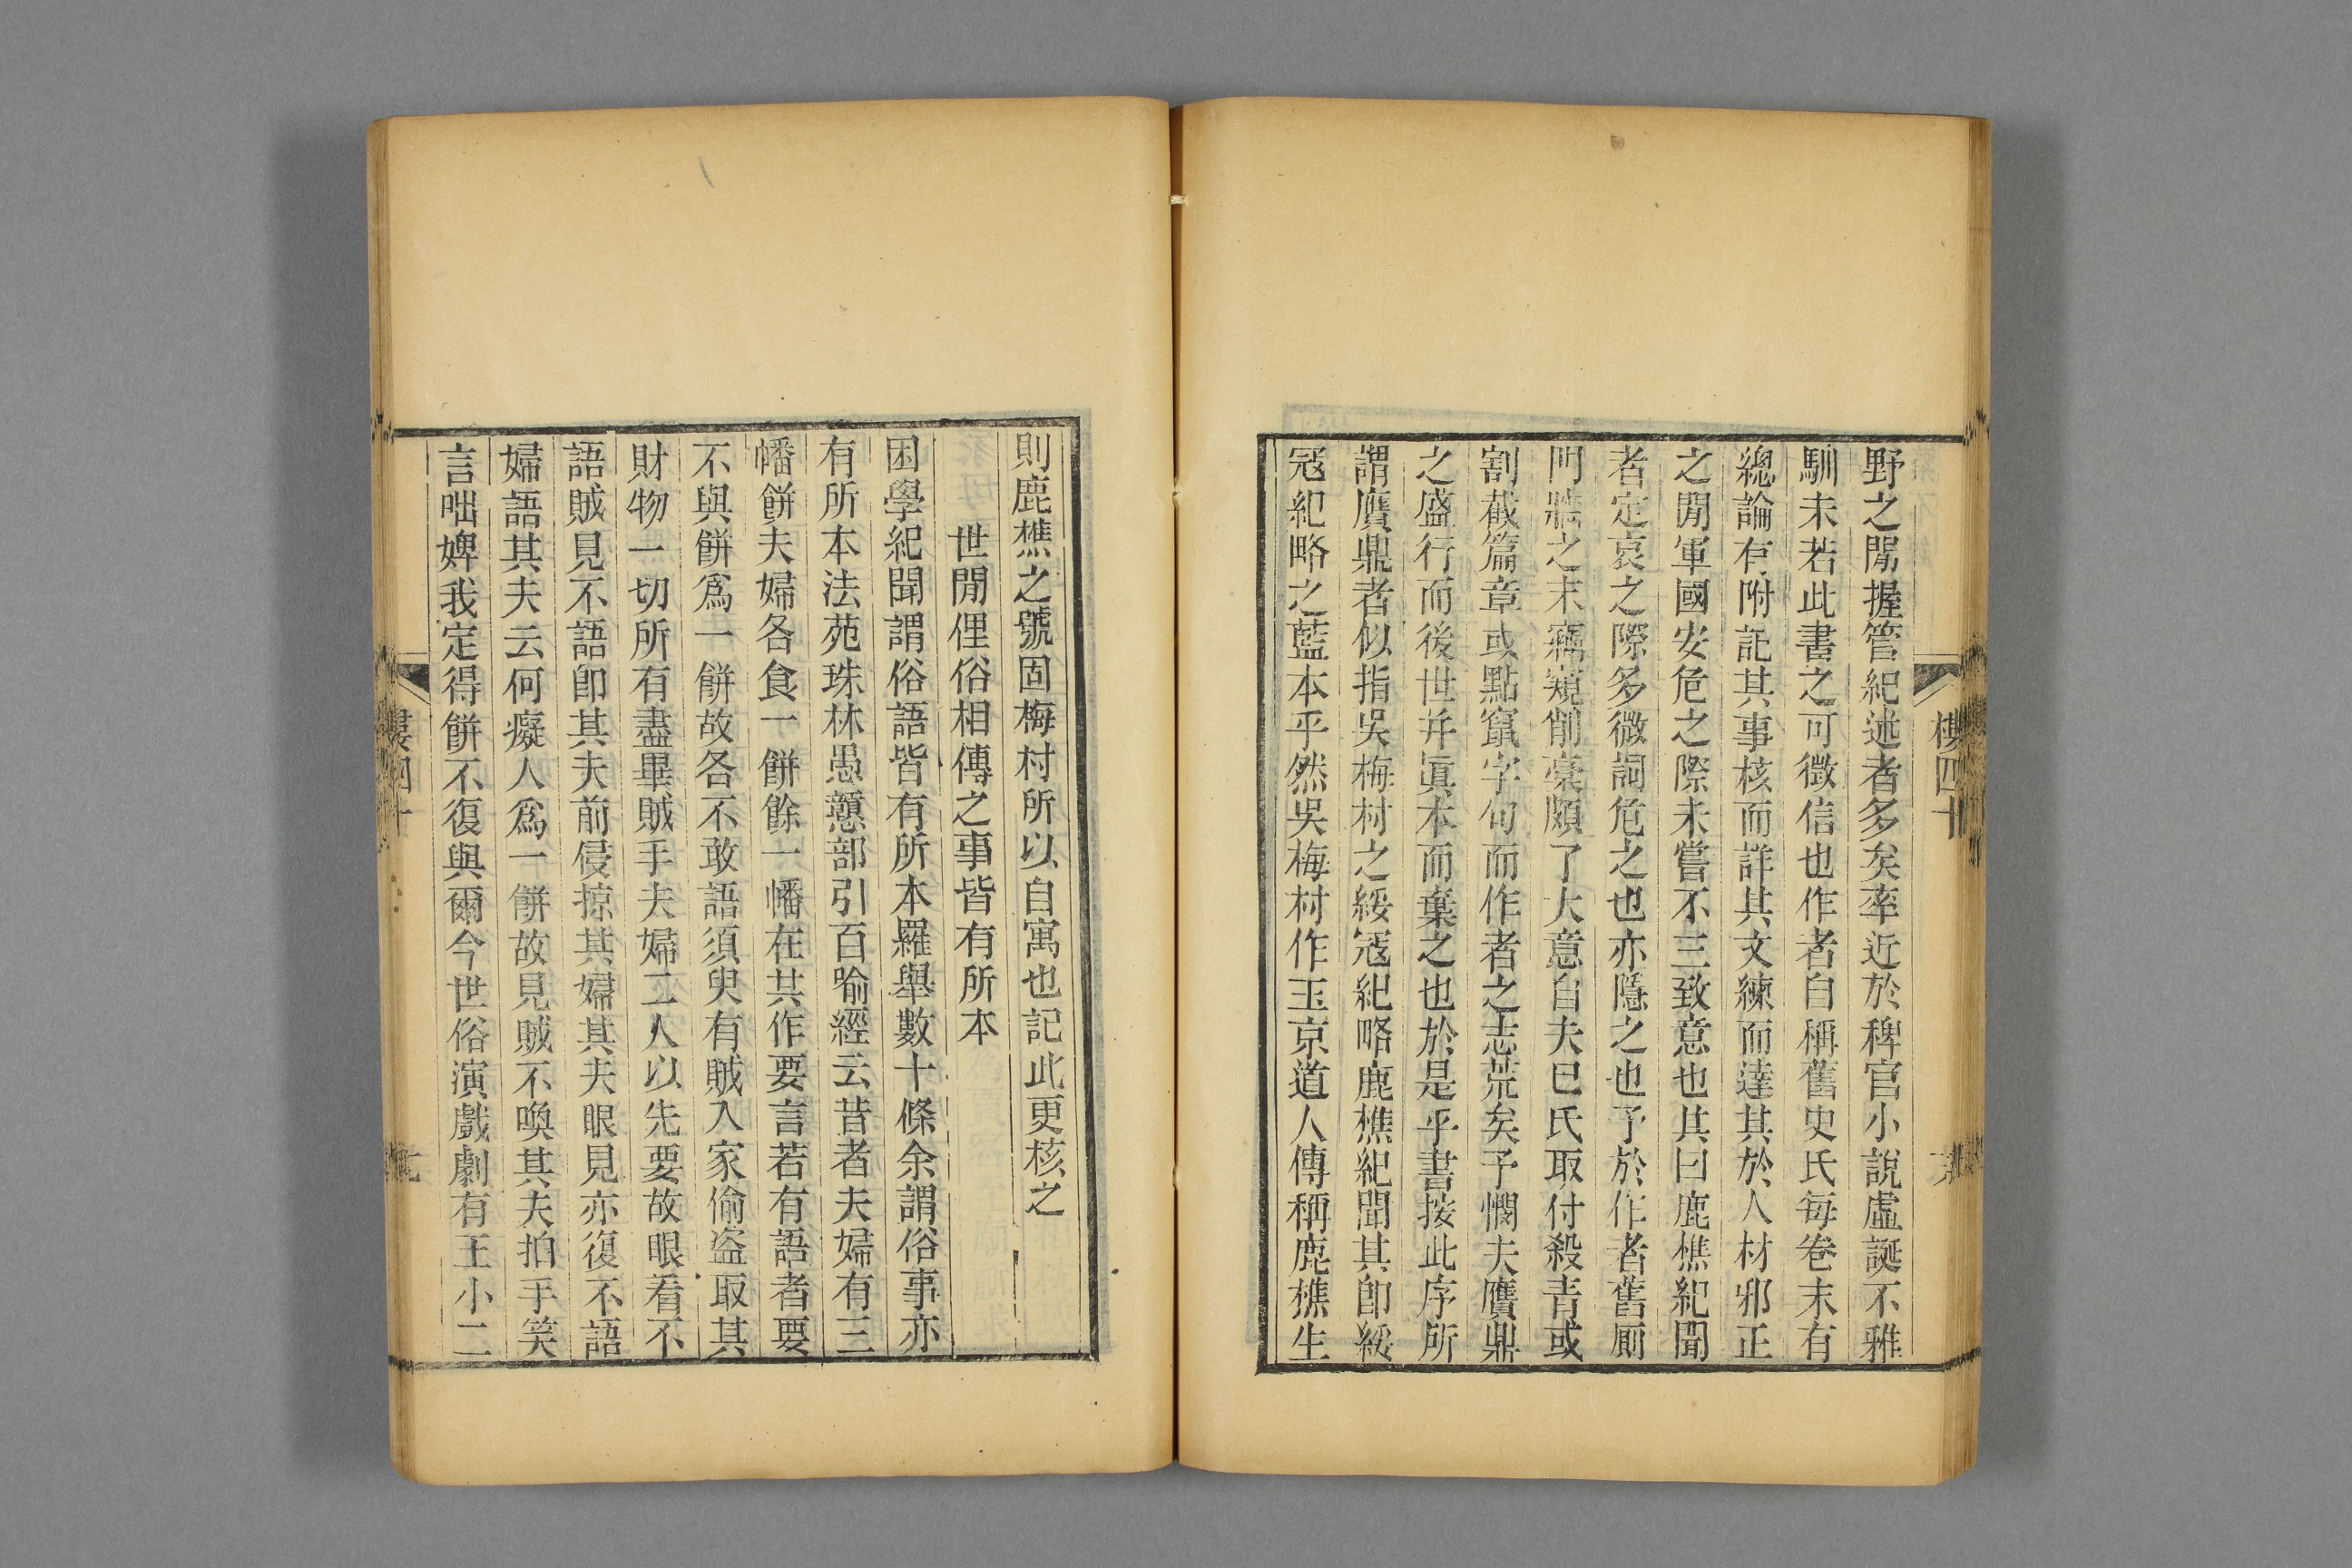 野之閒握管紀述者多矣率近於稗官小說虛誕不雅
馴未若此書之可徵信也作者自稱舊史氏每卷末有
總論有附記其事核而詳其文練而達其於人材邪正
之閒軍國安危之際未嘗不三致意也其曰鹿樵紀聞
者定哀之際多微詞危之也亦隱之也予於作者舊厠
門牆之末竊窺削稾頗了大意自夫巳氏取付殺青或
割截篇章或點竄字句而作者之志荒矣予憫夫贋鼎
之盛行而後世并眞本而棄之也於是乎書按此序所
謂贋鼎者似指吳梅村之綏寇紀略鹿樵紀聞其卽綏
寇紀略之藍本乎然吳梅村作玉京道人傳稱鹿樵生
則鹿樵之號固梅村所以自寓也記此更核之
世閒俚俗相傳之事皆有所本
困學紀聞謂俗語皆有所本羅舉數十條余謂俗事亦
有所本法苑珠林愚戇部引百喻經云昔者夫婦有三
幡餅夫婦各食一餅餘一幡在其作要言若有語者要
不與餅爲一餅故各不敢語須臾有賊入家偷盜取其
財物一切所有盡畢賊手夫婦二人以先要故眼看不
語賊見不語卽其夫前侵掠其婦其夫眼見亦復不語
婦語其夫云何癡人爲一餅故見賊不喚其夫拍手笑
言咄婢我定得餅不復與爾今世俗演戲劇有王小二
樓四十